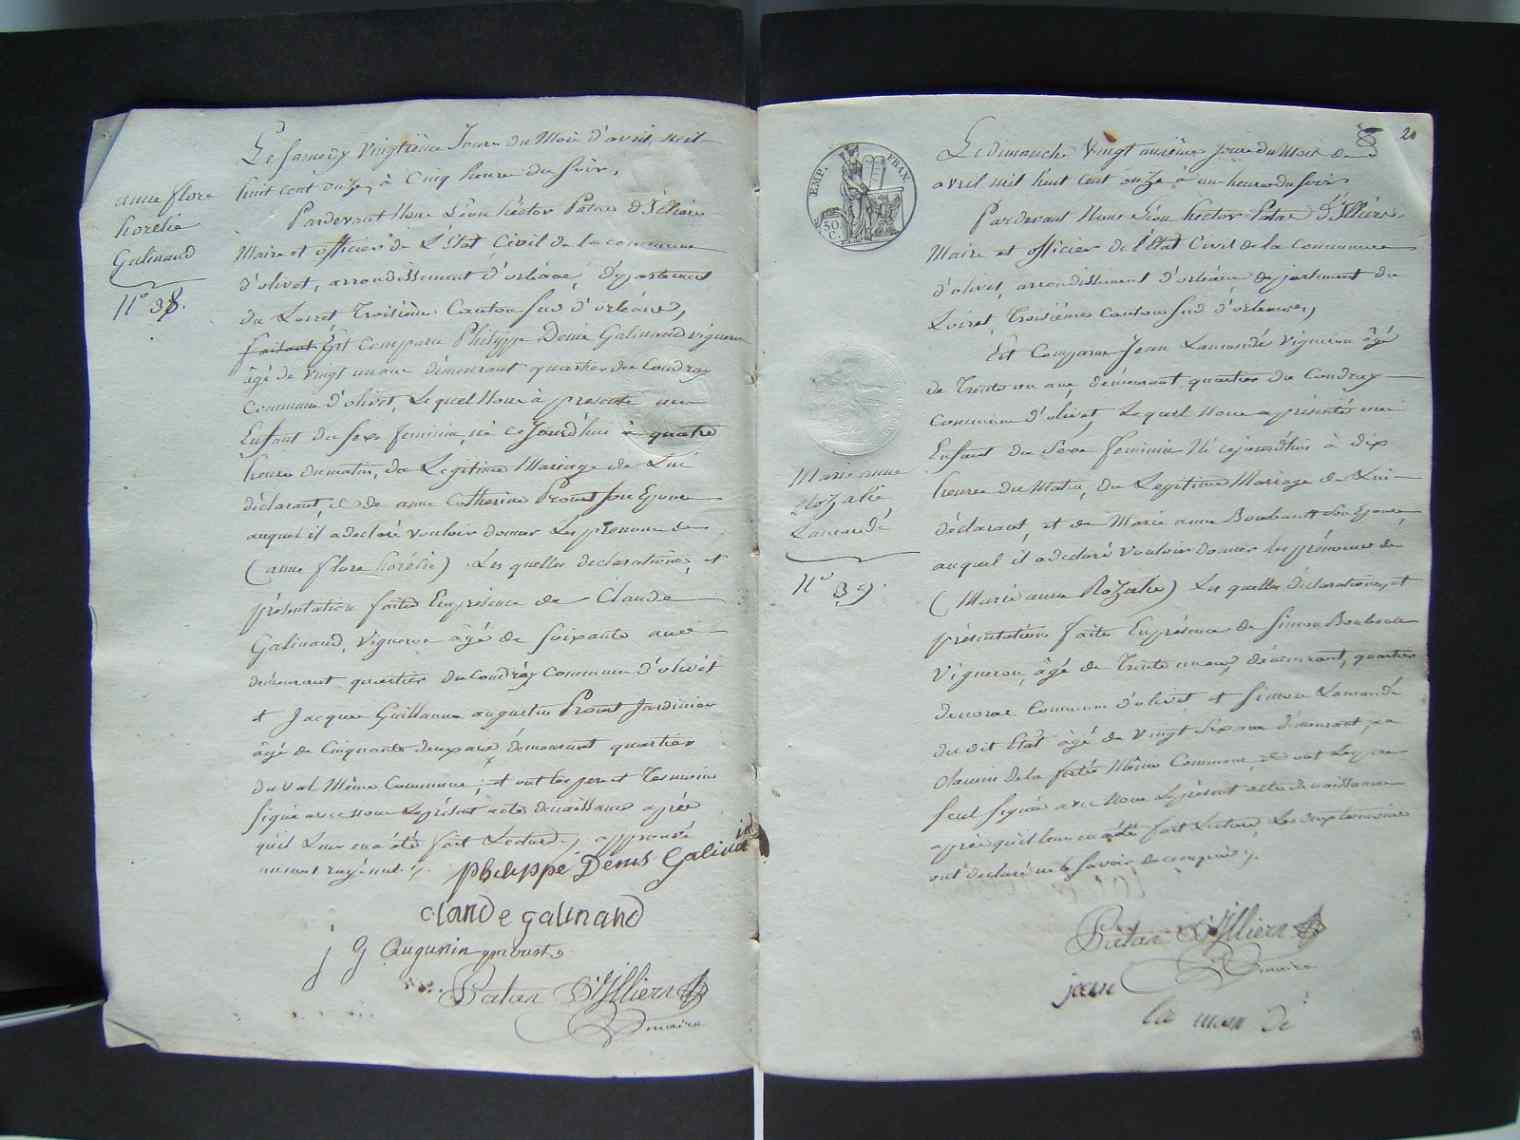 anne flore
horelie
Galinand
N° 38.
Le samedy vingtième Jour du Mois d'avril, mil
huit cent onze, à Cinq heure du soir,
Pardevant Nous Léon hector Patas d'Illiers
Maire et officier de L'État Civil de la commune
d'olivet, arrondissement d'orléans, département
du Loiret Troisième Canton sud d'orléans,
faisant Est Comparu Philippe Denis Galinand vigneron
âgé de vingt un ans demeurant quartier du Coudray
Commune d'olivet, Lequel Nous à présenté un
Enfant du sexe feminin, né ce Jourd'hui à quatre
heures du matin, du Legitime Mariage de Lui
déclarant, et de anne Catherine Proust son Epouse
auquel il a déclaré vouloir donner Les prénoms de
(anne flore horélie) Les quelles déclarations, et
présentation faites En présence de Claude
Galinand, vigneron âgé de soixante ans
demeurant quartier du Coudray Commune d'olivet
et Jacques Guillaume augustin Proust Jardinier
âgé de Cinquante deux ans, demeurant quartier
du val Même Commune; et ont les pere et Tesmoins
signé avec nous Le présent acte de naissance après
qu'il Leur en a été fait Lecture, approuvé
un mot rayé nul.
philippe Denis Galinand
clande galinand
j G augustin proust
Patas D'Illiers
maire
20
EMP. FRAN
50 C.
Le dimanche vingt unième jour du Mois de
avril mil huit cent onze à un heure du soir
Pardevant Nous Léon hector Patas d'Illiers,
Maire et officier de l'État Civil de la Commune
d'olivet, arrondissement d'orléans département du
Loiret, Troisième canton sud d'orléans,
Est Comparu Jean Lamandé vigneron âgé
de Trente un ans, demeurant quartier du Coudray
commune d'olivet, Lequel Nous a présenté un
Enfant du sexe feminin Né cejourd'hui à dix
heures du Matin, du Legitime Mariage de Lui
déclarant, et de Marie anne Boubault son Epouse,
auquel il a déclaré vouloir donner les prénoms de
(Marie anne Rozalie) Les quelles déclarations, et
présentation faites En présence de simon
vigneron, âgé de Trente un ans, demeurant, quartier
Commune d'olivet et simon Lamandé
du dit Etat âgé de vingt six ans demeurant
de la ferté Même Commune, et ont Le pere
seul signé avec Nous Le présent acte de naissance
après qu'il leur en a été fait Lecture, Les deux temoins
ont déclaré ne savoir
Marie anne
Rozalie
Lamandé
N° 39.
Patas D'Illiers
maire
jean
la man dé